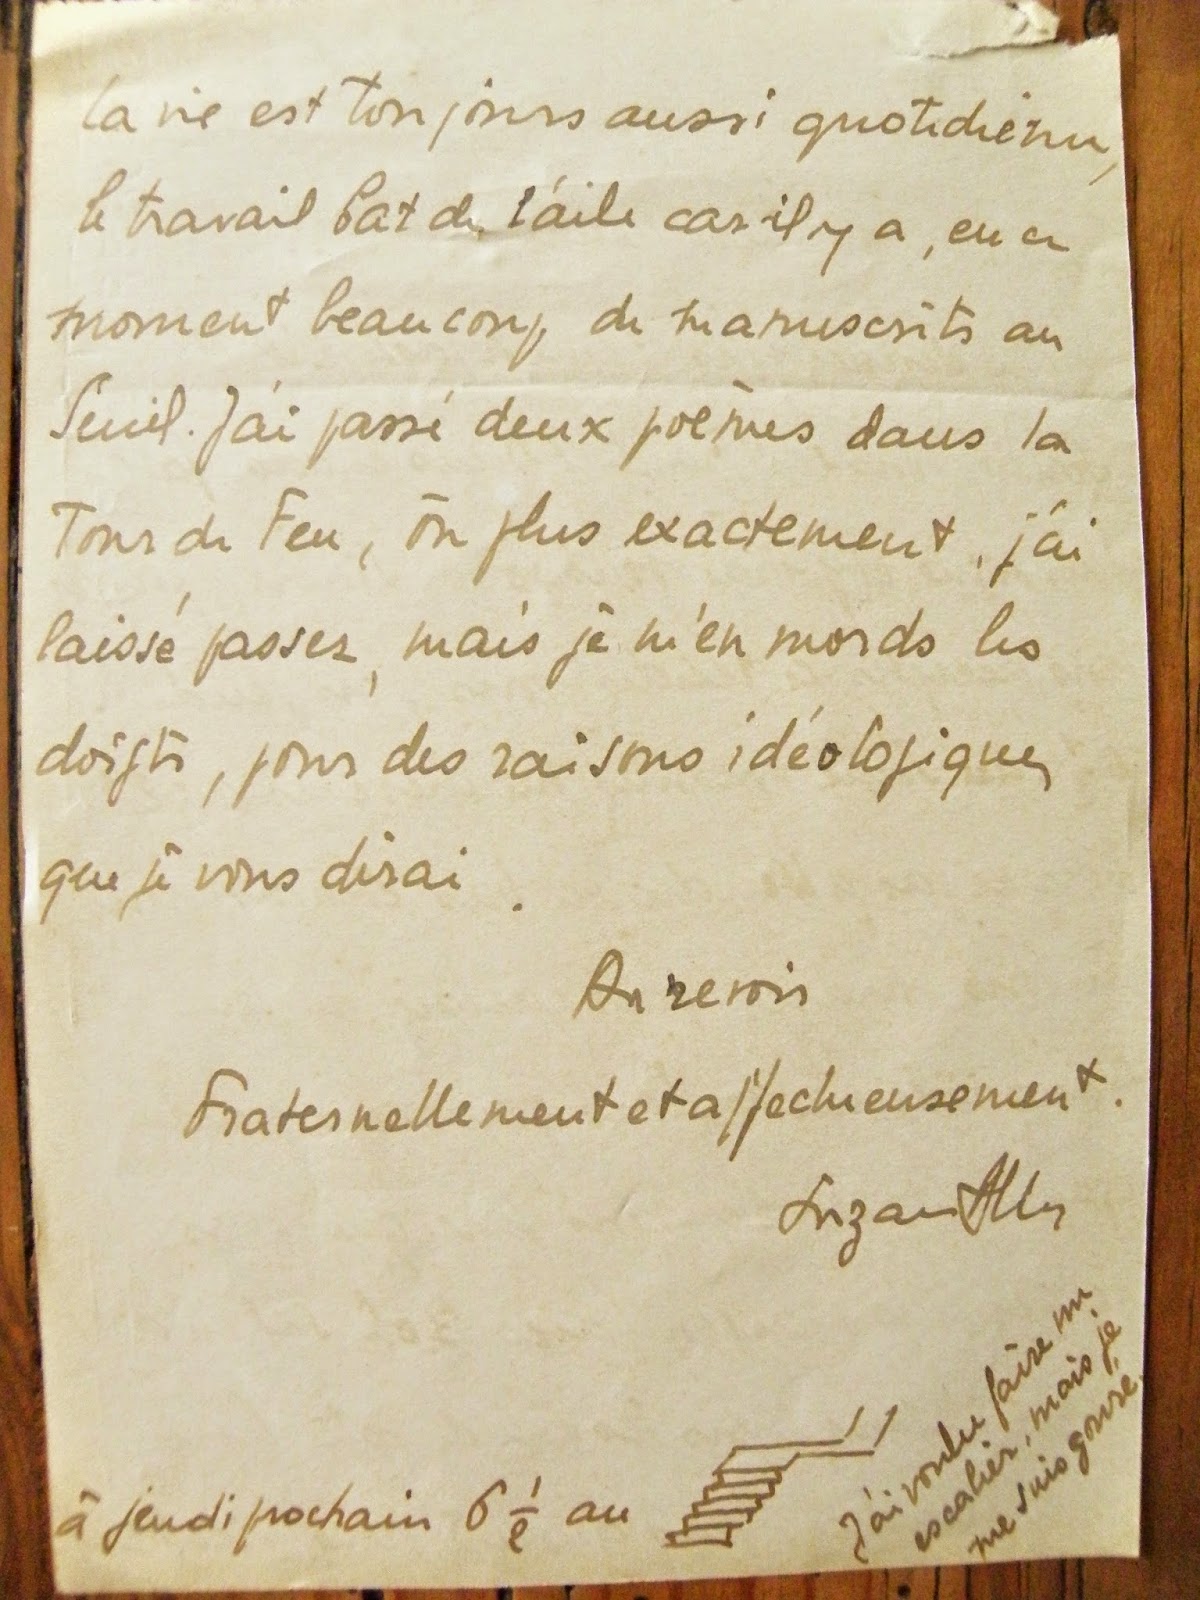 la vie est toujours aussi quotidienne,
le travail bat de l'aile car il y a, en ce
moment beaucoup de manuscrits au
Seuil. J'ai passé deux poèmes dans la
Tour de Feu, ou plus exactement, j'ai
laissé passer, mais je m'en mords les
doigts, pour des raisons idéologiques
que je vous dirai.
Au revoir
Fraternellement et affectueusement.
Suzanne
à jeudi prochain 6 1/2 au
J'ai voulu faire un
escalier, mais je
me suis gouré.